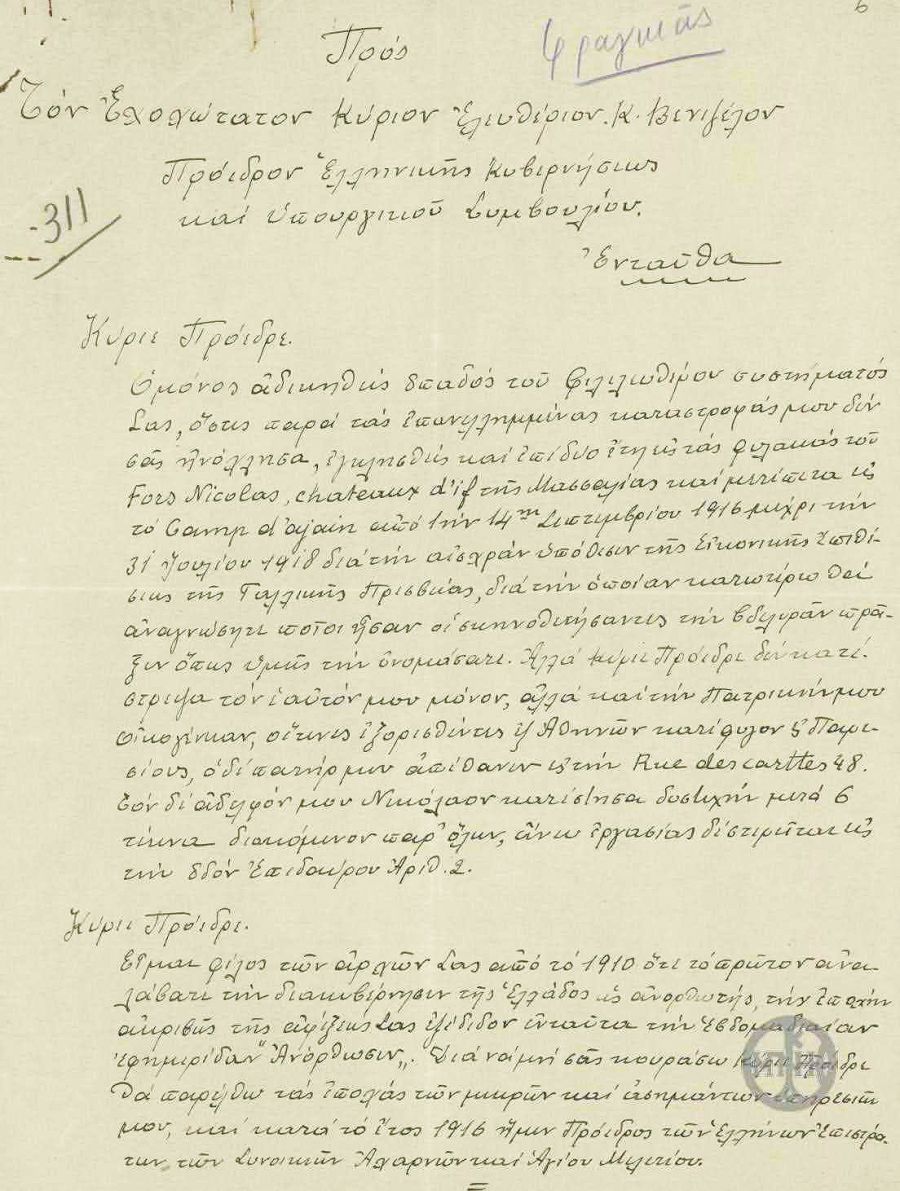 6
Φραγκιᾶς
Πρός
Τόν Ἐξοχώτατον Κύριον Ἐλευθέριον. Κ. Βενιζέλον
Πρόεδρον Ἑλληνικῆς Κυβερνήσεως
καί Ὑπουργικοῦ Συμβουλίου.
-311
Ἐνταῦθα
Κύριε Πρόεδρε.
Ὁ μόνος ἀδικηθείς ὀπαδός τοῦ Φιλελευθέρου συστήματός
Σας, ὅστις παρά τάς ἐπανειλημμένας καταστροφάς μου δέν
σᾶς ἠνόχλησα, ἐγκλεισθείς καί ἐπί δύο ἔτη εἰς τάς φυλακάς τοῦ
Fors Nicolas, chateaux d'if τῆς Μασσαλίας καί μετέπειτα εἰς
τό Camp d'ajain ἀπό τήν 14ην Σεπτεμβρίου 1916 μέχρι τήν
31 Ἰουλίου 1918 διά τήν αἰσχράν ὑπόθεσιν τῆς Εἰκονικῆς Ἐπιθέ-
σεως τῆς Γαλλικῆς Πρεσβείας, διά τήν ὁποίαν κατωτέρω θά
ἀναγνώσητε ποῖοι ἦσαν οἱ σκηνοθετήσαντες τήν βδελυράν πρᾶ-
ξιν ὅπως ὑμεῖς τήν ὀνομάσατε. Ἀλλά Κύριε Πρόεδρε δέν κατέ-
στρεψα τον ἑαυτόν μου μόνον, ἀλλά καί τήν Πατρικήν μου
οἰκογένειαν, οἵτινες ἐξορισθέντες ἐξ Ἀθηνῶν κατέφυγον εἰς Παρι-
σίους, ὁ δέ πατήρ μου ἀπέθανεν εἰς τήν Rue des carttes 48.
Τόν δέ ἀδελφόν μου Νικόλαον κατέστησα δυστυχῆ μετά 6
τέκνα διακόμενον παρ' ὅλων, ἄνευ ἐργασίας δέ στερεῖται εἰς
τήν ὁδόν Ἐπιδαύρου Ἀριθ. 2.
Κύριε Πρόεδρε.
Εἶμαι φίλος τῶν ἀρχῶν Σας ἀπό τό 1910 ὅτε τό πρῶτον ἀνε-
λάβατε τήν διακυβέρνησιν τῆς Ἑλλάδος ὡς ἀνορθωτής, τήν ἐποχήν
ἀκριβῶς τῆς ἀφίξεώς Σας ἐξέδιδον ἐνταῦτα τήν Ἑβδομαδιαίαν
ἐφημερίδαν "Ἀνόρθωσιν". Διά νά μή σᾶς κουράσω Κύριε Πρόεδρε
θά παρέλθω τάς ἐποχάς τῶν μικρῶν καί ἀσημάντων ὑπηρεσιῶν
μου, καί κατά τό ἔτος 1916 ἤμην Πρόεδρος τῶν Ἑλλήνων Ἐπιστρά-
των, τῶν Συνοικιῶν Ἀχαρνῶν καί Ἁγίου Μελετίου.